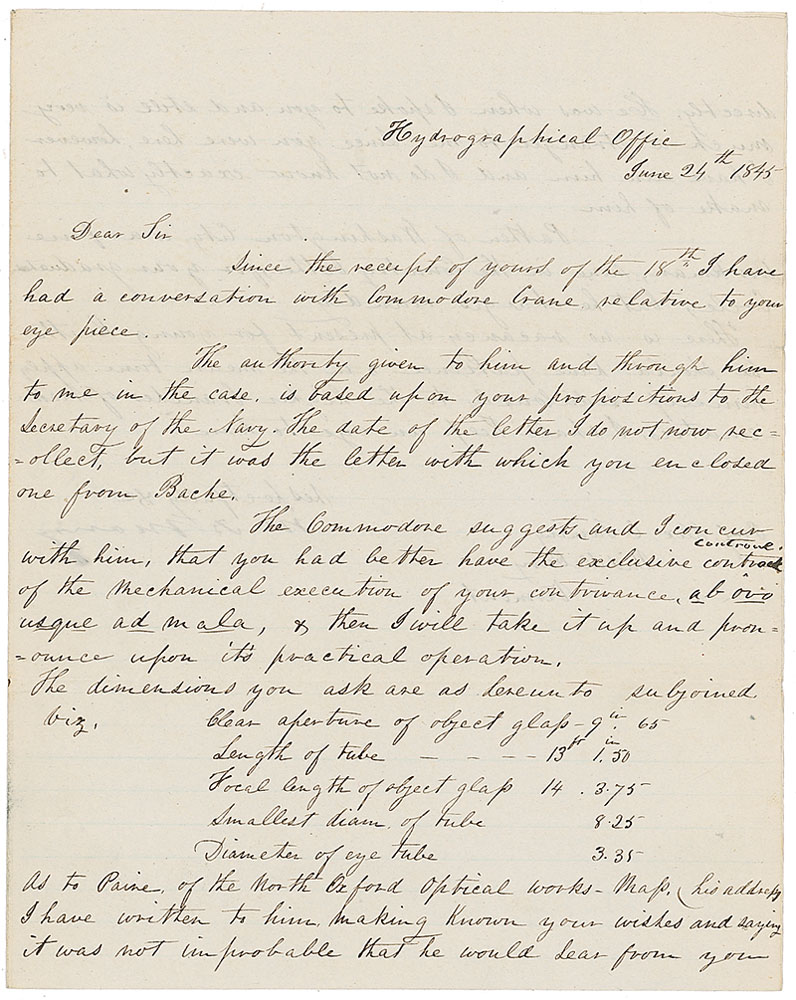 Hydrographical Offic
June 24th 1845
Dear Sir
Since the receipt of yours of the 18th I have
had a conversation with Commodore Crane relative to your
eye piece.
The authority given to him and through him
to me in the case, is based upon your propositions to the
Secretary of the Navy. The date of the letter I do not now rec=
=ollect, but it was the letter with which you enclosed
one from Bache.
The Commodore suggests, and I concur
with him, that you had better have the exclusive control
of the mechanical execution of your contrivance, ab ovo
usque ad mala, & then I will take it up and pron=
=ounce upon it's practical operation.
The dimensions you ask are as hereunto subjoined
viz,
Clear aperture of object glass - 9in. 65
Length of tube - - - - 13ft 1.in50
Focal length of object glass 14 . 3.75
Smallest diam. of tube 8.25
Diameter of eye tube 3.35
As to Paine, of the North Oxford Optical works - Mass, (his address
I have written to him, making known your wishes and saying
it was not improbable that he would hear from you